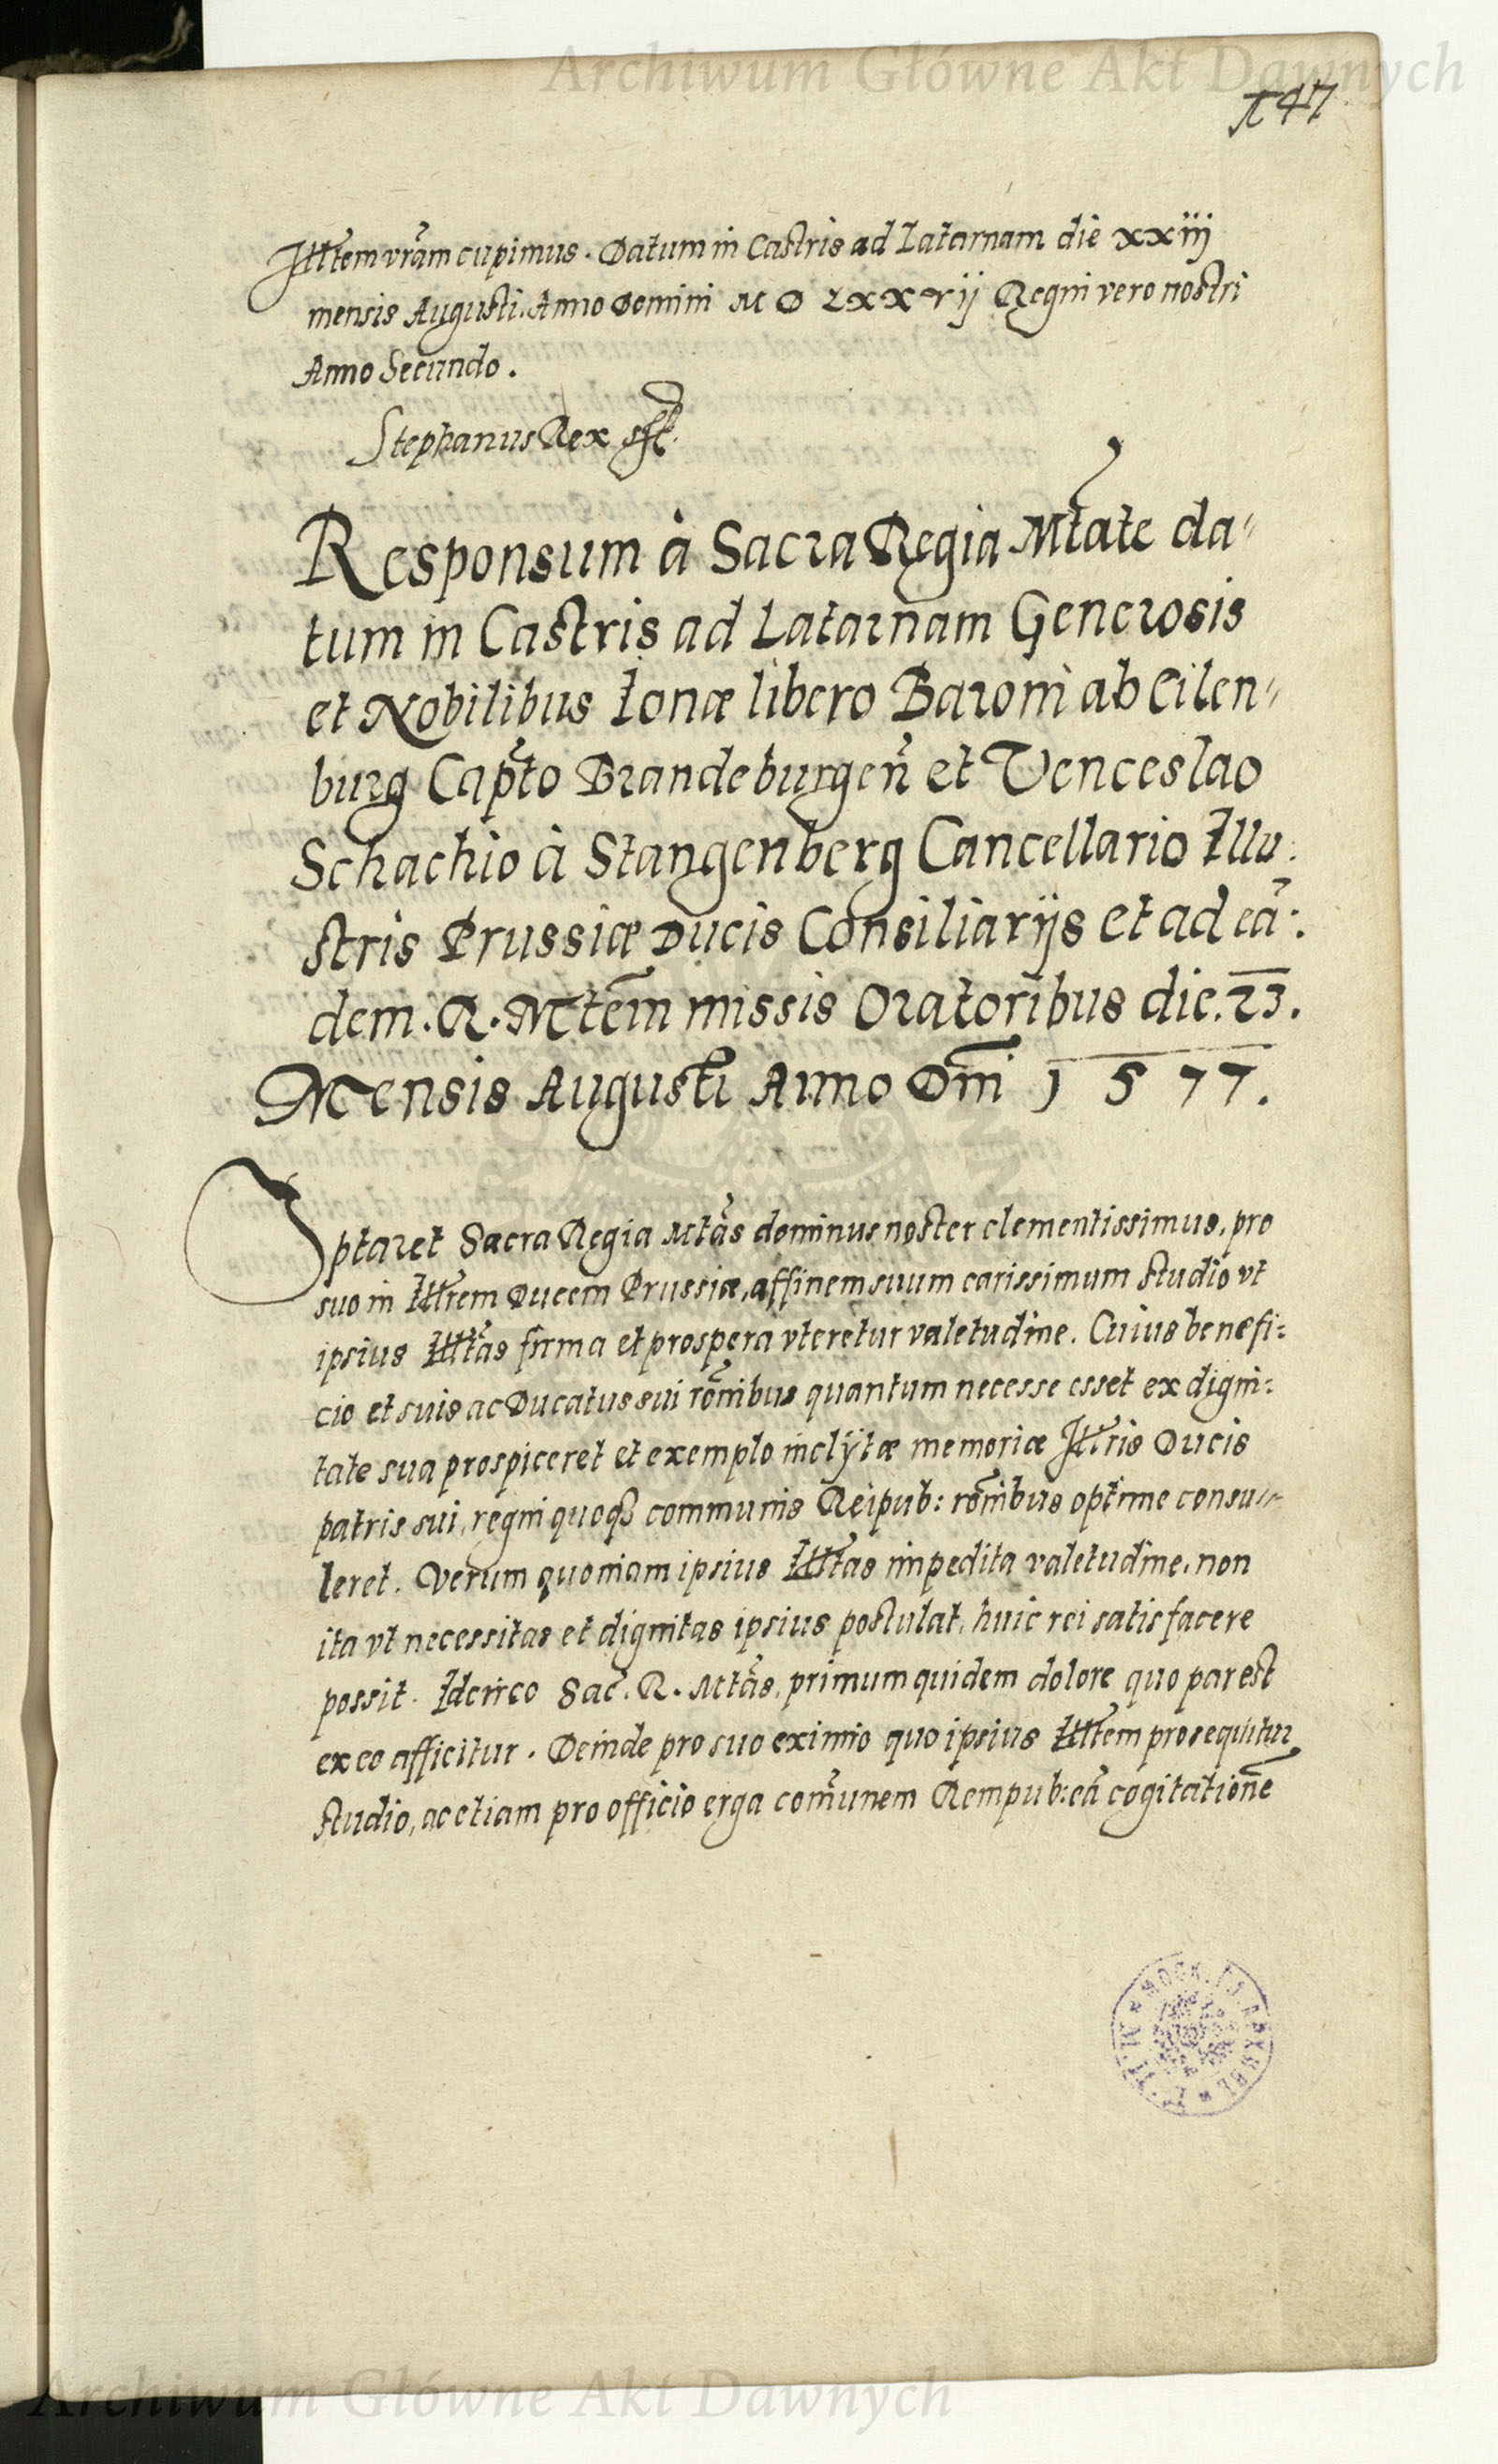 Archiwum Główne Akt Dawnych
147
Illtem vram cupimus. Datum in Castris ad Latarnam die xxiij
mensis Augusti. Anno Domini M D LXXVij Regni vero nostri
Anno Secundo.
Stephanus Rex sst.
Responsum à Sacra Regia Mtate da⸗
tum in Castris ad Latarnam Generosis
et Nobilibus Ionæ libero Baroni ab Eilen⸗
burg Capto Brandeburgeñ et Venceslao
Schachio à Stangenberg Cancellario Illu:
stris Prussiæ Ducis Consiliarijs et ad eã:
dem. R. Mtem missis Oratoribus die. 23.
Mensis Augusti Anno Dni 1577.
Optaret Sacra Regia Mtas dominus noster clementissimus, pro
suo in Illrem Ducem Prussiæ, affinem suum carissimum studio vt
ipsius Illtas firma et prospera vteretur valetudine. Cuius benefi:
cio et suis ac Ducatus sui rõnibus quantum necesse esset ex digni:
tate sua prospiceret et exemplo inclÿtæ memoriæ Illris Ducis
patris sui, regni quoqȝ communis Reipub: rõnibus optime consu⸗
leret. Verum quoniam ipsius Illtas impedita valetudine, non
ita vt necessitas et dignitas ipsius postulat, huic rei satisfacere
possit. Idcirco Sac. R. Mtas, primum quidem dolore quo par est
ex eo afficitur. Deinde pro suo eximio quo ipsius Illtem prosequitur
studio, ac etiam pro officio erga comunem Rempub: eã cogitationẽ
Archiwum Główne Akt Dawnych